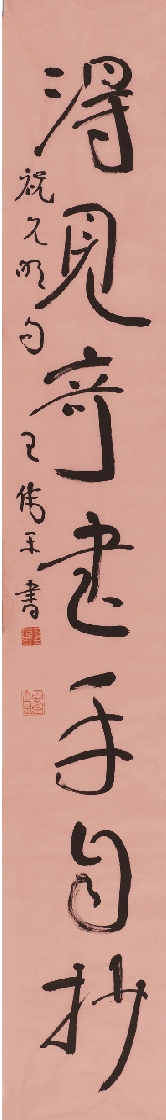 得見奇書手自抄
祝允明句 王偉平書